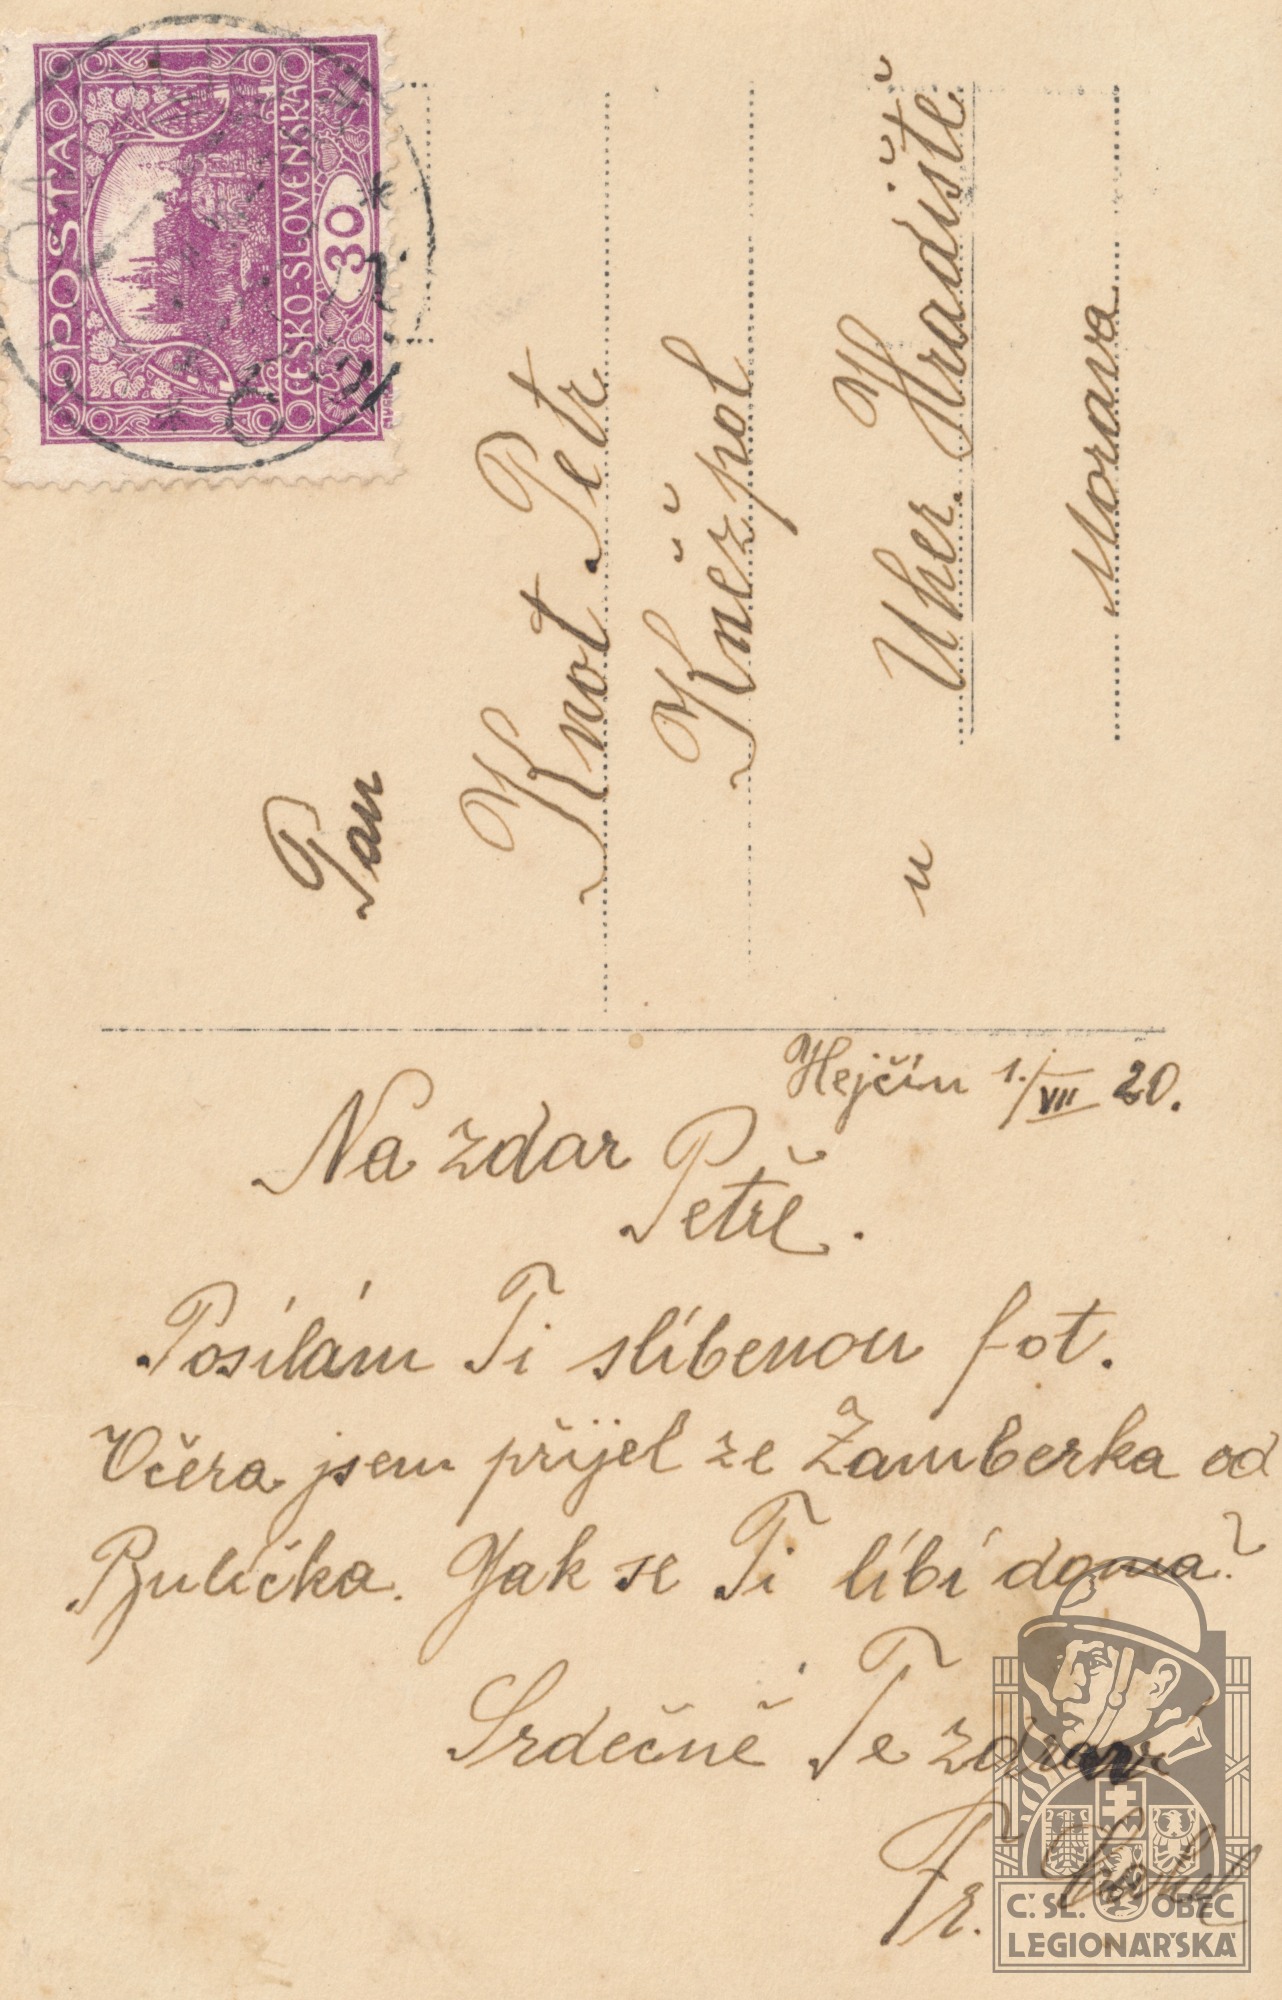 POSTA
ČESKO-SLOVENSKÁ
30
Pan
Knot Petr
Kněžpol
u Uher. Hradiště
Morava
Hejčín 1./VII 20.
Na zdar
Petře.
Posílám Ti slíbenou fot.
Včera jsem přijel ze Žamberka od
Bulička. Jak se Ti líbí doma?
Srdečně Te zdraví
Fr.
Č.SL. OBEC
LEGIONÁŘSKÁ